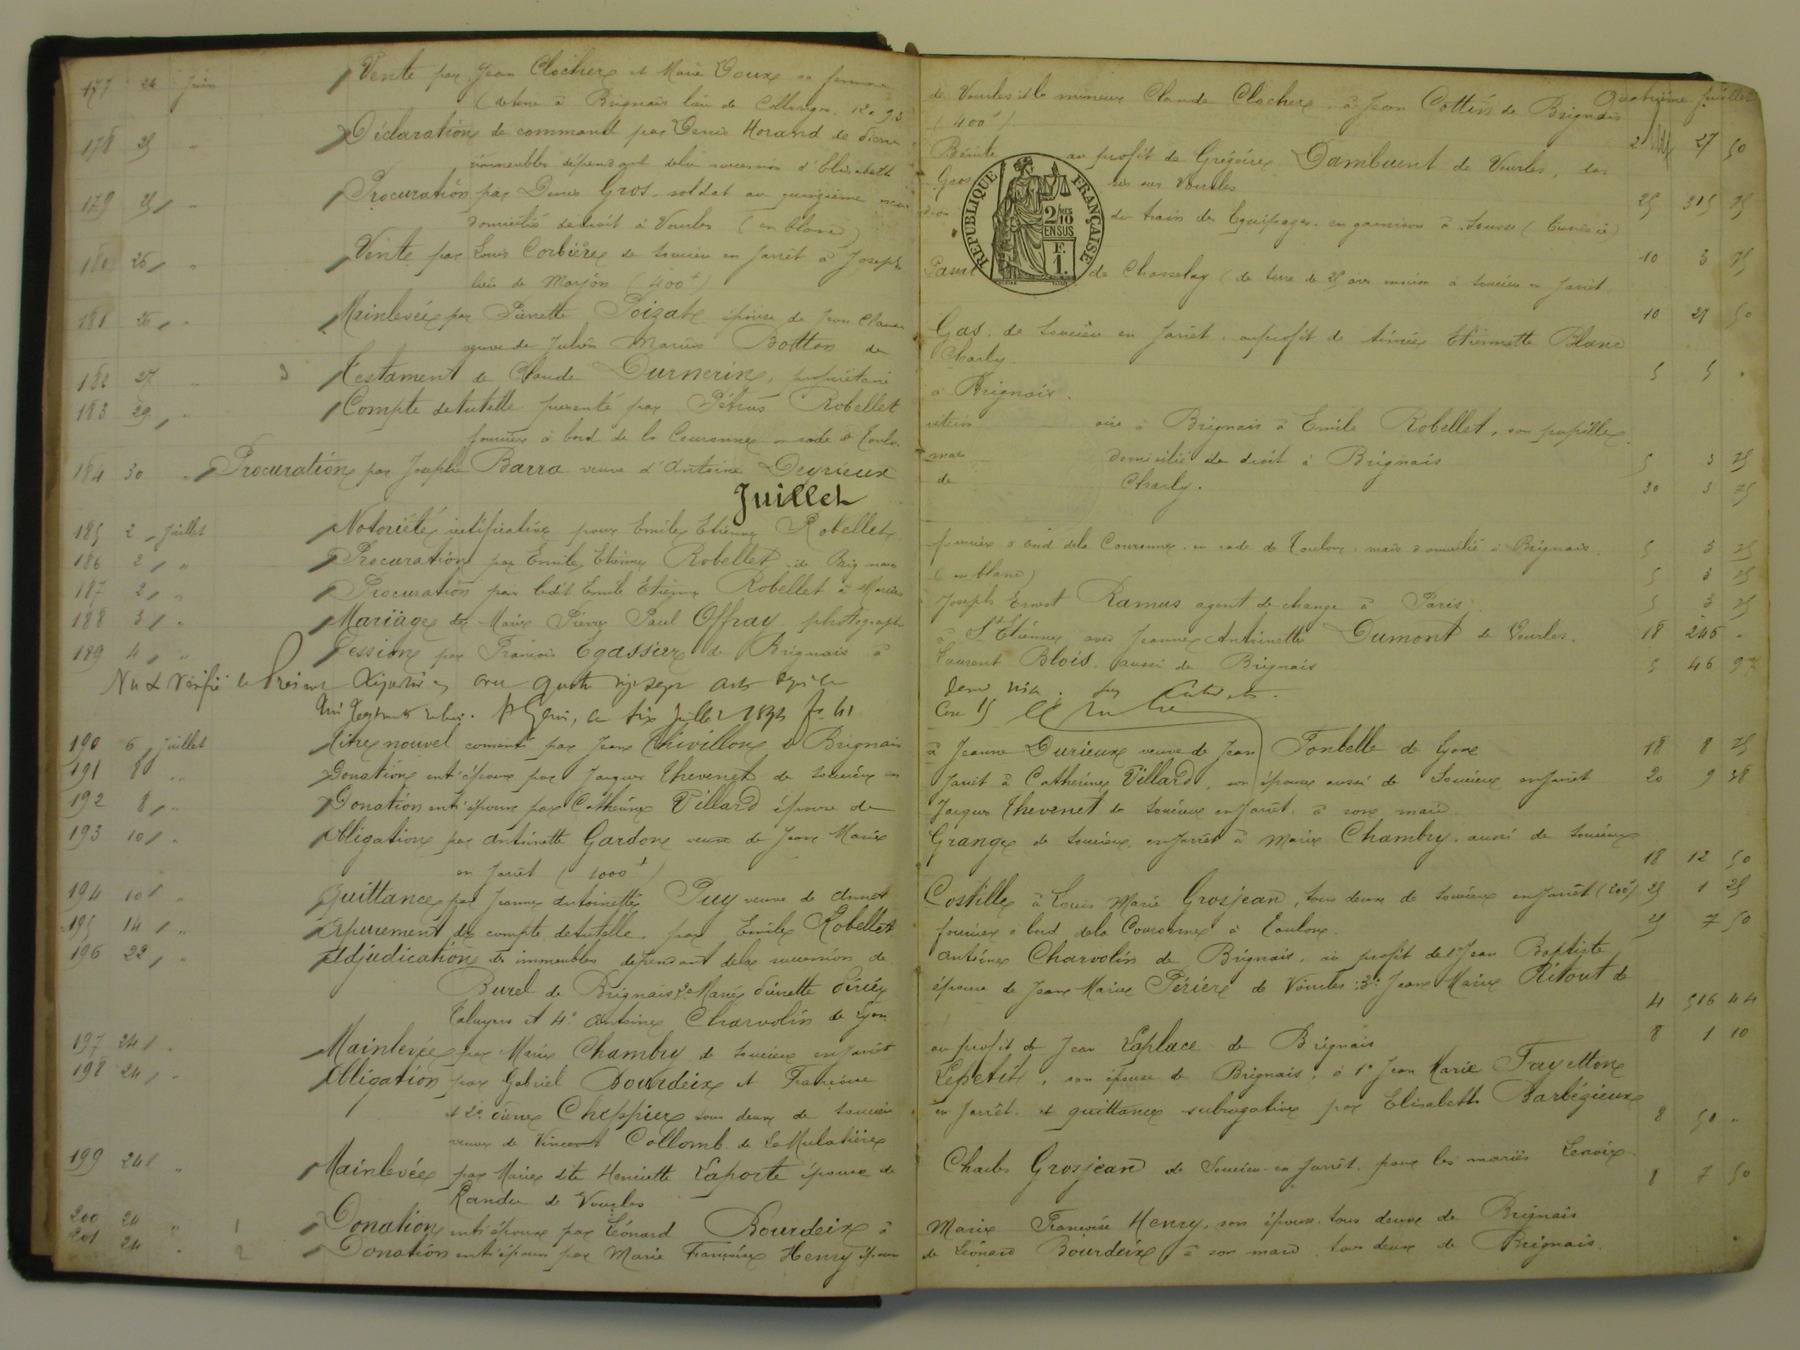 Quatrième feuillet
177 24 Juin Vente par Jean Clocher et Marie Goux sa femme de Vourles et le mineur Claude Clocher à Jean Cottin de Brignais
(de terre à Brignais lieu de Collonges 12a 93 (400f) 27 50
178 25 " Déclaration de command par Denis Morand de au profit de Grégoire Dambuent de Vourles, des
immeubles dépendant de la succession d'Elisabeth Gros sis sur Vourles 25 315 75
179 25 " Procuration par Denis Gros soldat au quinzième du train des Equipages en garnison à Sousse (Tunisie)
domicilié de droit à Vourles (en blanc) 10 3 75
180 26 " Vente par Louis Corbière de Soucieu en Jarret à Joseph de Chasselay (de terre de 25 ares environ à Soucieu en Jarret
lieu de Marjon (400f) 10 29 50
181 26 " Mainlevée par Pierrette Poizat épouse de Jean Claude Gas de Soucieu en Jarret, au profit de Aimée Etiennette Blanc
veuve de Julien Marius Botton de Charly 5 5 "
182 27 " 3 Testament de Claude Durnerin, propriétaire à Brignais.
183 29 " Compte de tutelle présenté par Pétrus Robellet à Brignais à Emile Robellet, son pupille
fourrier à bord de la Couronne en rade de Toulon mais domicilié de droit à Brignais 5 3 75
184 30 " Procuration par Josephe Barra veuve d'Antoine Deyrieux de Charly. 30 3 75
Juillet
185 2 Juillet Notoriété rectificative pour Emile Etienne Robellet fourrier à bord de la Couronne en rade de Toulon mais domicilié à Brignais 5 3 75
186 2 " Procuration par Emile Etienne Robellet de Brignais (en blanc) 5 3 75
187 2 " Procuration par ledit Emile Etienne Robellet à Joseph Ernest Ramus agent de change à Paris 5 3 75
188 3 " Mariage de Marie Pierre Paul Offray photographe à St Etienne avec Jeanne Antoinette Dumont de Vourles. 18 246 "
189 4 " Cession par François Egassier de Brignais à Laurent Blois aussi de Brignais 5 46 97
Vu & Vérifié le Présent
six Juillet
190 6 Juillet Titre nouvel consenti par Jean Thivillon de Brignais à Jeanne Durieux veuve de Jean Fontelle de Lyon 18 8 75
191 8 " Donation entre époux par Jacques Thevenet de Soucieu en Jarret à Catherine Villard, son épouse aussi de Soucieu en Jarret 20 9 38
192 8 " Donation entre époux par Catherine Villard épouse de Jacques Thevenet de Soucieu en Jarret à son mari
193 10 " Obligation par Antoinette Gardon veuve de Jean Marie Grange de Soucieu en Jarret à Marie Chambry aussi de Soucieu
en Jarret (1000f) 18 12 50
194 10 " Quittance par Jeanne Antoinette Puy veuve de Annet Costille à Louis Marie Grosjean, tous deux de Soucieu en Jarret (200f) 25 1 25
195 14 " Apurement de compte de tutelle par Emile Robellet fourrier à bord de la Couronne à Toulon 25 7 50
196 22 " Adjudication des immeubles dépendant de la succession de Antoine Charvolin de Brignais, au profit de 1° Jean Baptiste
Burel de Brignais 2° Marie Pierrette Périer épouse de Jean Marie Périer de Vourles 3° Jean Marie Ritout de
Taluyers et 4° Antoine Charvolin de Lyon 4 516 44
197 24 " Mainlevée par Marie Chambry de Soucieu en Jarret au profit de Jean Laplace de Brignais 8 1 10
198 24 " Obligation par Gabriel Bourdeix et Françoise Lepetit, son épouse de Brignais, à 1° Jean Marie Fayetton
et 2° Pierre Cheppieu tous deux de Soucieu en Jarret et quittance subrogative par Elisabeth Barbézieux
veuve de Vincent Collomb de La Mulatière 8 50 "
199 24 " Mainlevée par Marie dite Henriette Laporte épouse de Charles Grosjean de Soucieu en Jarret pour les mariés Lenoir
Randu de Vourles 1 7 50
200 24 " 1 Donation entre époux par Léonard Bourdeix à Marie Françoise Henry, son épouse tous deux de Brignais
201 24 " 2 Donation entre époux par Marie Françoise Henry épouse de Léonard Bourdeix à son mari tous deux de Brignais
REPUBLIQUE FRANÇAISE
2/10 EN SUS
F 1.